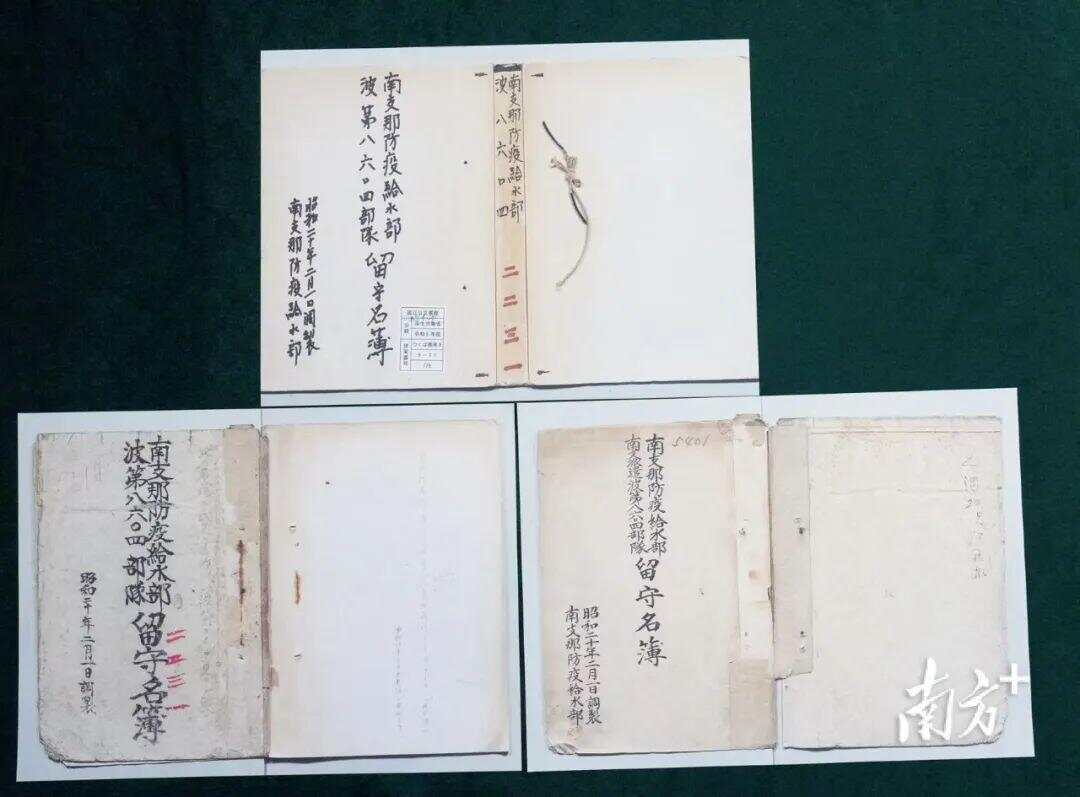 南支那防疫給水部
波第八六〇四部隊 留守名簿
昭和二十年二月一日調製
南支那防疫給水部
南支那防疫給水部
波八六〇四
二二三一
国立公文書館
南支那防疫給水部
波第八六〇四部隊 留守名簿
昭和二十年二月一日調製
二二三一
5401
南支那防疫給水部
南支派遣波第八六〇四部隊 留守名簿
昭和二十年二月一日調製
南支那防疫給水部
南方+